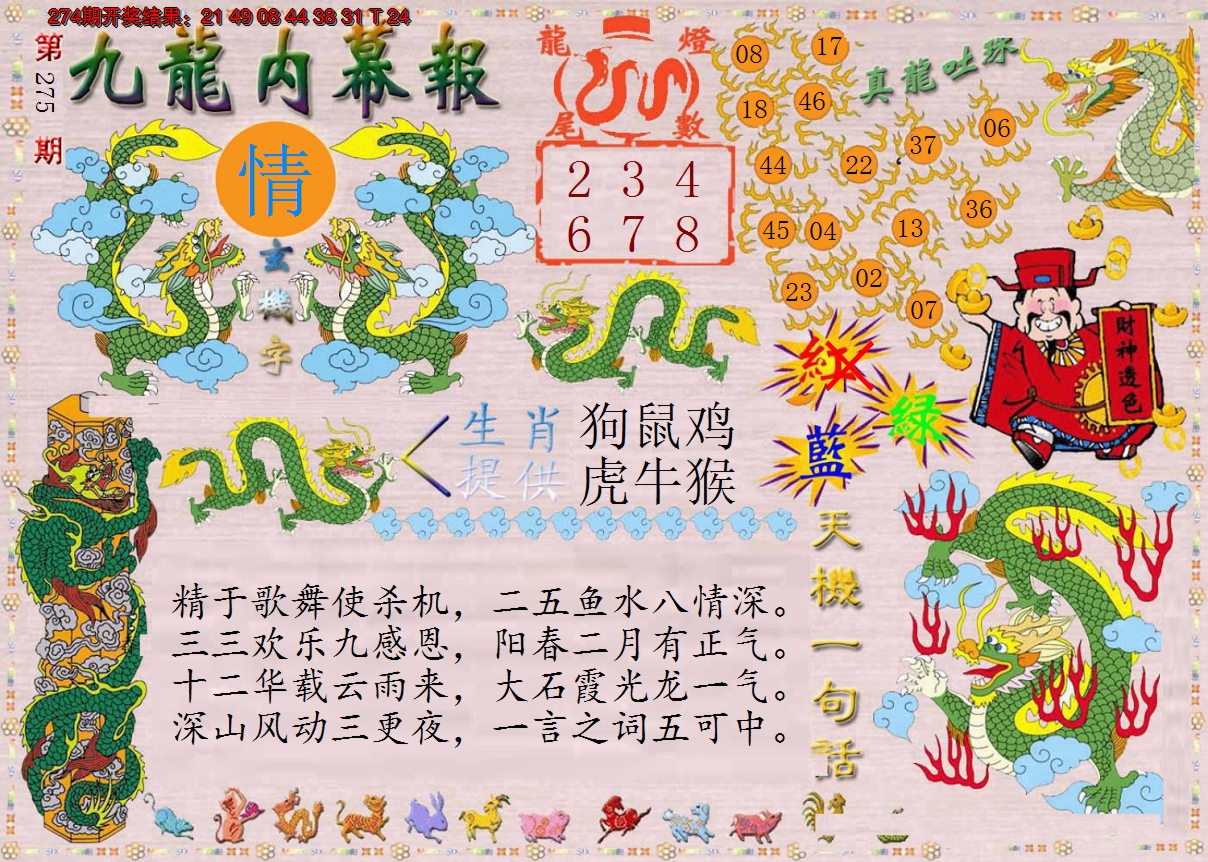 274期开奖结果：21 49 08 44 38 31 T 24
第275期
九龍内幕報
情
玄機字
龍燈
尾數
2 3 4
6 7 8
真龍吐珠
08 17
18 46
44 22 37 06
45 04 13 36
23 02 07
財神透色
紅
绿
藍
生肖
提供
狗鼠鸡
虎牛猴
天機一句话
精于歌舞使杀机，二五鱼水八情深。
三三欢乐九感恩，阳春二月有正气。
十二华载云雨来，大石霞光龙一气。
深山风动三更夜，一言之词五可中。